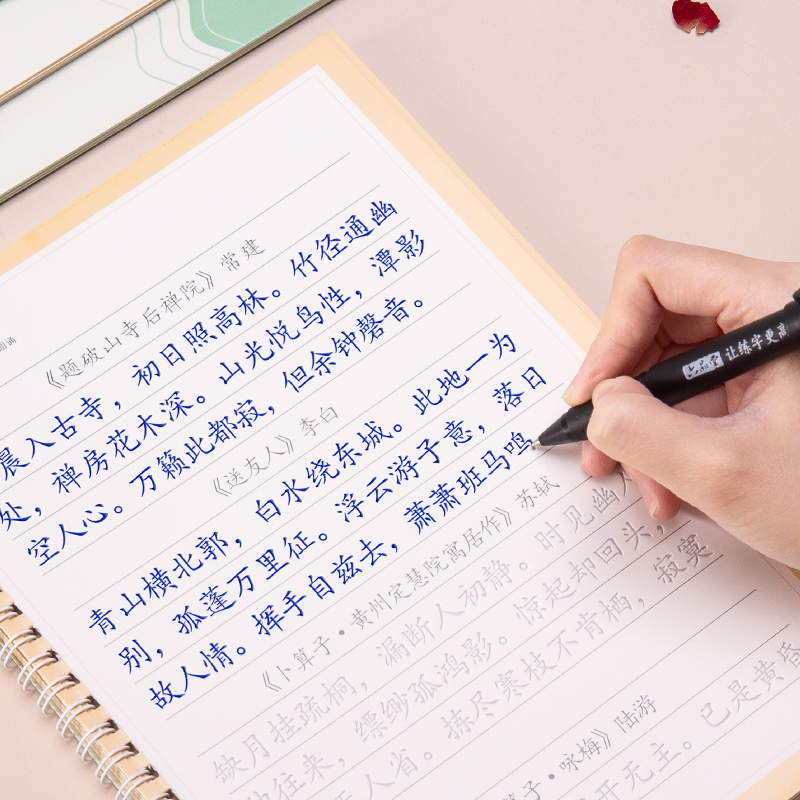 朗诵
《题破山寺后禅院》常建
晨入古寺，初日照高林。竹径通幽
处，禅房花木深。山光悦鸟性，潭影
空人心。万籁此都寂，但余钟磬音。
《送友人》李白
青山横北郭，白水绕东城。此地一为
别，孤蓬万里征。浮云游子意，落日
故人情。挥手自兹去，萧萧班马鸣
《卜算子·黄州定慧院寓居作》苏轼
缺月挂疏桐，漏断人初静。时见幽人
往来，缥缈孤鸿影。惊起却回头，
人省。拣尽寒枝不肯栖，寂寞
算子·咏梅》陆游
开无主。已是黄昏
让练字更高